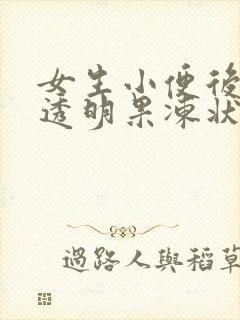 女生小便後
透明果凍狀
過路人與稻草